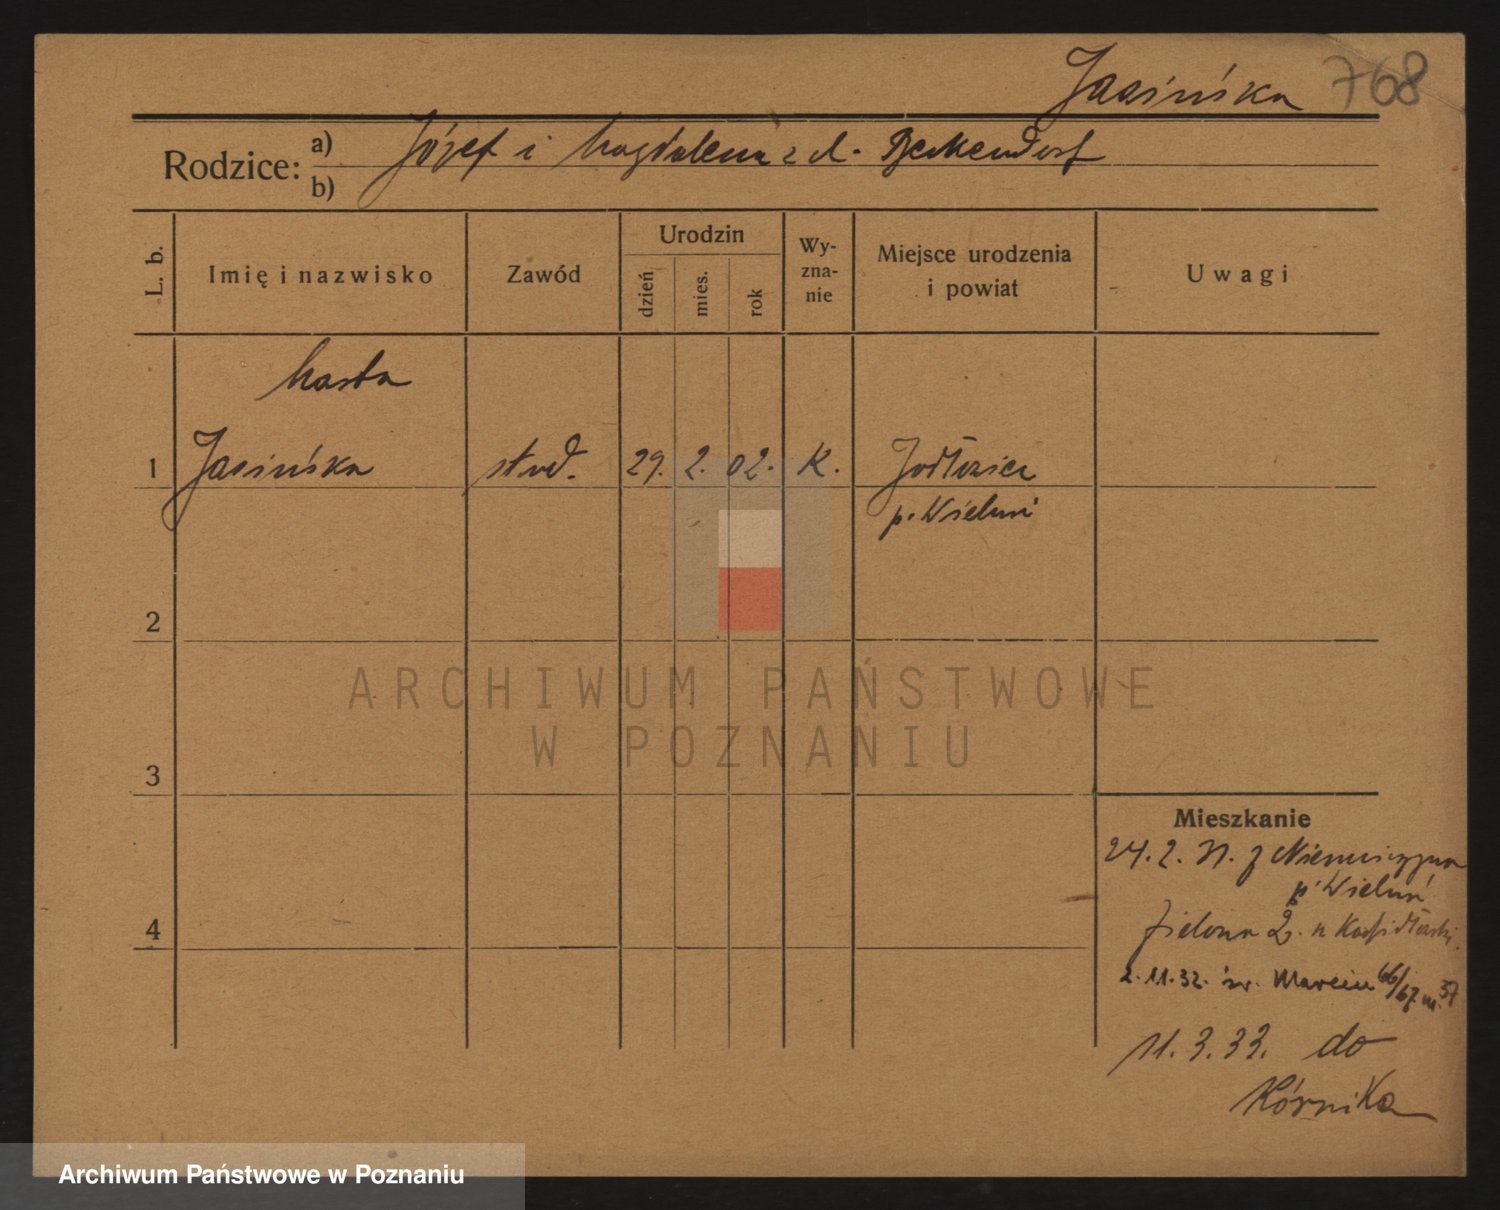 Jasińska 768
Rodzice: a) Józef i Magdalena z d. Beckendorf
b)
L. b.
Imię i nazwisko
Zawód
Urodzin
dzień
mies.
rok
Wy-
zna-
nie
Miejsce urodzenia
i powiat
Uwagi
Marta
1 Jasińska stud. 29. 2. 02. K.
p. Wieluń
2
3
4
Mieszkanie
24. 2. 31. z
p. Wieluń
Zielona 2.
2. 11. 32. św. Marcin 66/67 m. 37
11. 3. 33. do
Kórnika
ARCHIWUM PAŃSTWOWE
W POZNANIU
Archiwum Państwowe w Poznaniu